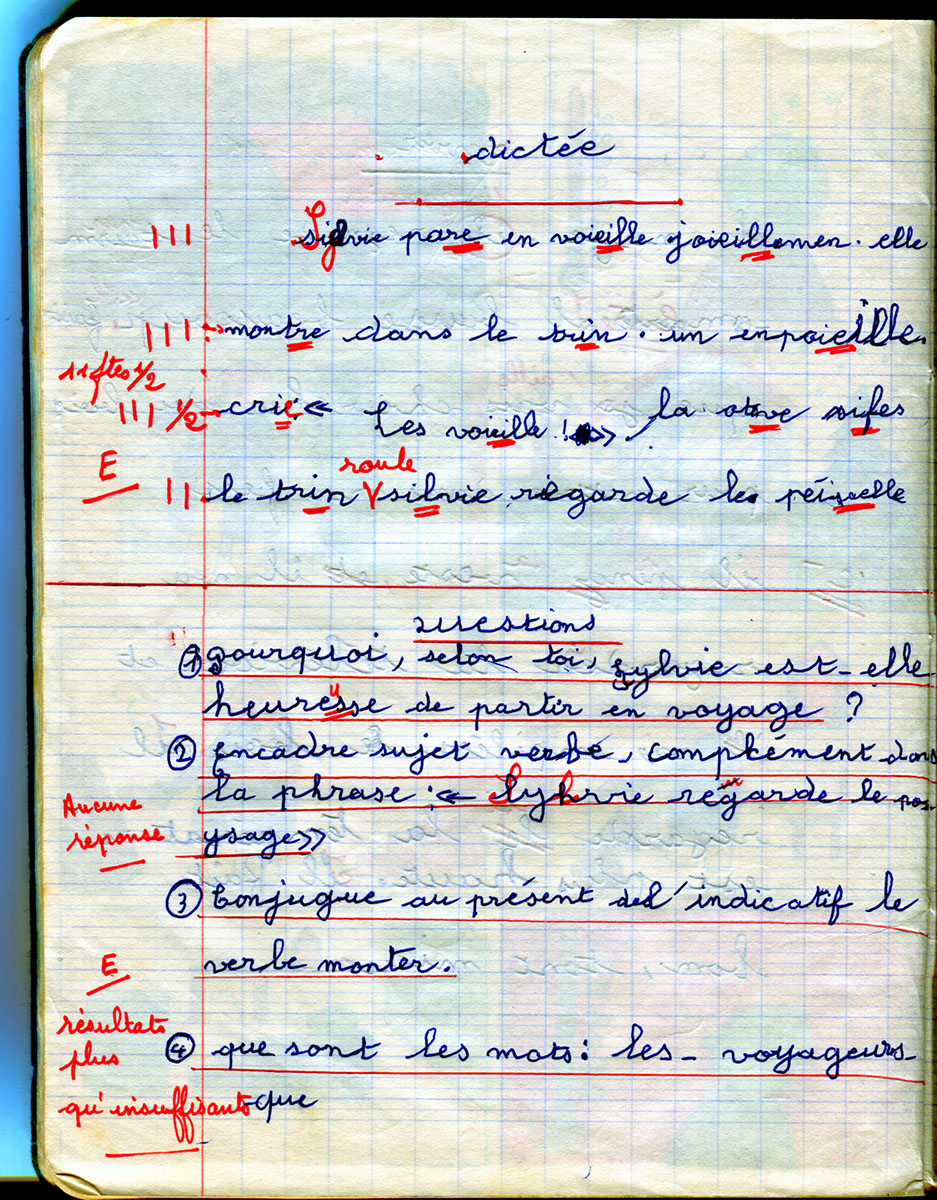 dictée
III Sylvie pare en voieille joieillemen. elle
III montre dans le trin. un enpoieille
11 ftes 1/2
III 1/2 crie « Les voieille ! » la otve sifes
E
roule
II le trin V silvie régarde le péiquelle
questions
① pourquoi, selon toi, Sylvie est-elle
heuresse de partir en voyage ?
② Encadre sujet verbe, complément dans
la phrase : « Sylvie regarde le pa
Aucune
réponse
ysage »
③ Conjugue au présent del'indicatif le
E
verbe monter.
résultats
plus
④ que sont les mots : les - voyageurs -
qu'insuffisants
que